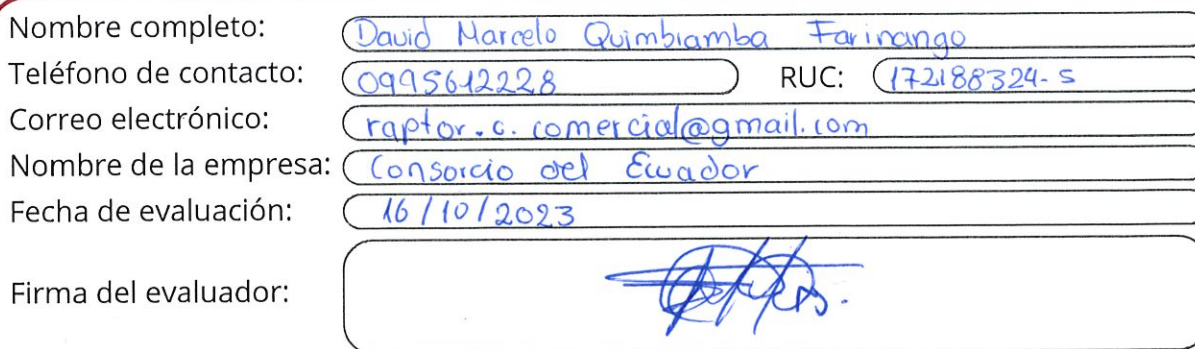 Nombre completo: David Marcelo Quimbiamba Farinango
Teléfono de contacto: 0995612228 RUC: 172188324-5
Correo electrónico: raptor.c.comercial@gmail.com
Nombre de la empresa: Consorcio del Ecuador
Fecha de evaluación: 16/10/2023
Firma del evaluador: